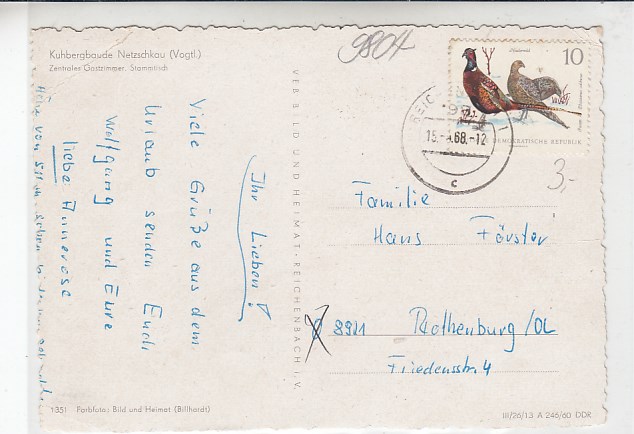 Kuhbergbaude Netzschkau (Vogtl.)
Zentrales Gastzimmer, Stammtisch
Ihr Lieben!
Viele Grüße aus dem
Urlaub senden Euch
Wolfgang und Eure
liebe Annerose
VEB BILD UND HEIMAT · REICHENBACH I. V.
9804
10
DEMOKRATISCHE REPUBLIK
REIC
15.-4.68.-12
c
3,-
Familie
Hans Förster
8921 Rothenburg/OL
Friedensstr. 4
1351 Farbfoto: Bild und Heimat (Billhardt)
III/26/13 A 246/60 DDR